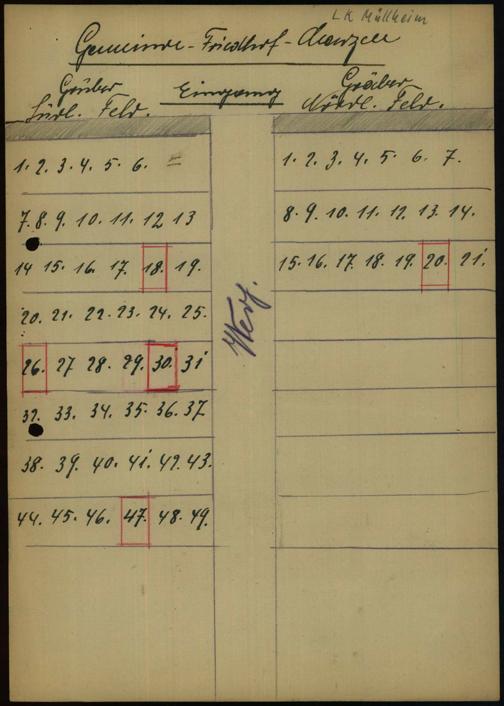 LK Müllheim
Gemeinde-Friedhof-Mauzen
Gräber Südl. Feld.
Eingang
Gräber Nördl. Feld.
1. 2. 3. 4. 5. 6. =
7. 8. 9. 10. 11. 12 13
14 15. 16. 17. 18. 19.
20. 21. 22. 23. 24. 25.
26. 27 28. 29. 30. 31
32. 33. 34. 35. 36. 37
38. 39. 40. 41. 42. 43.
44. 45. 46. 47. 48. 49.
1. 2. 3. 4. 5. 6. 7.
8. 9. 10. 11. 12. 13. 14.
15. 16. 17. 18. 19. 20. 21.